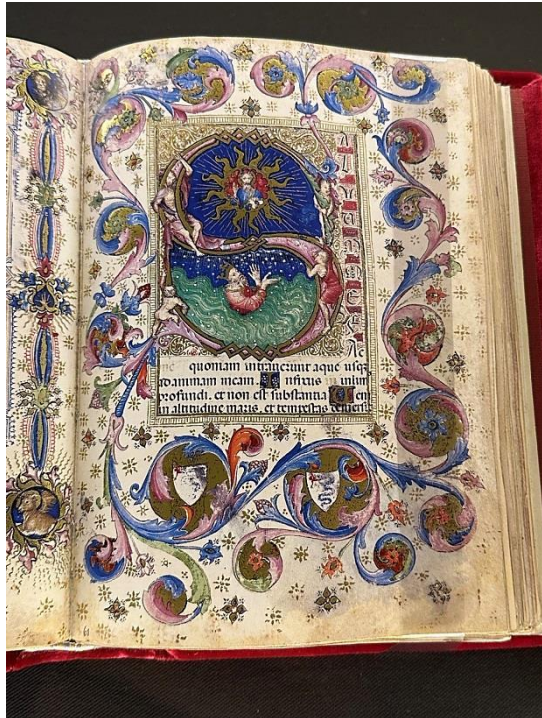 SALVUM
quoniam intraverunt aque usq
ad animam meam. Infixus in lim
profundi. et non est substantia Ven
in altitudine maris. et tempestas